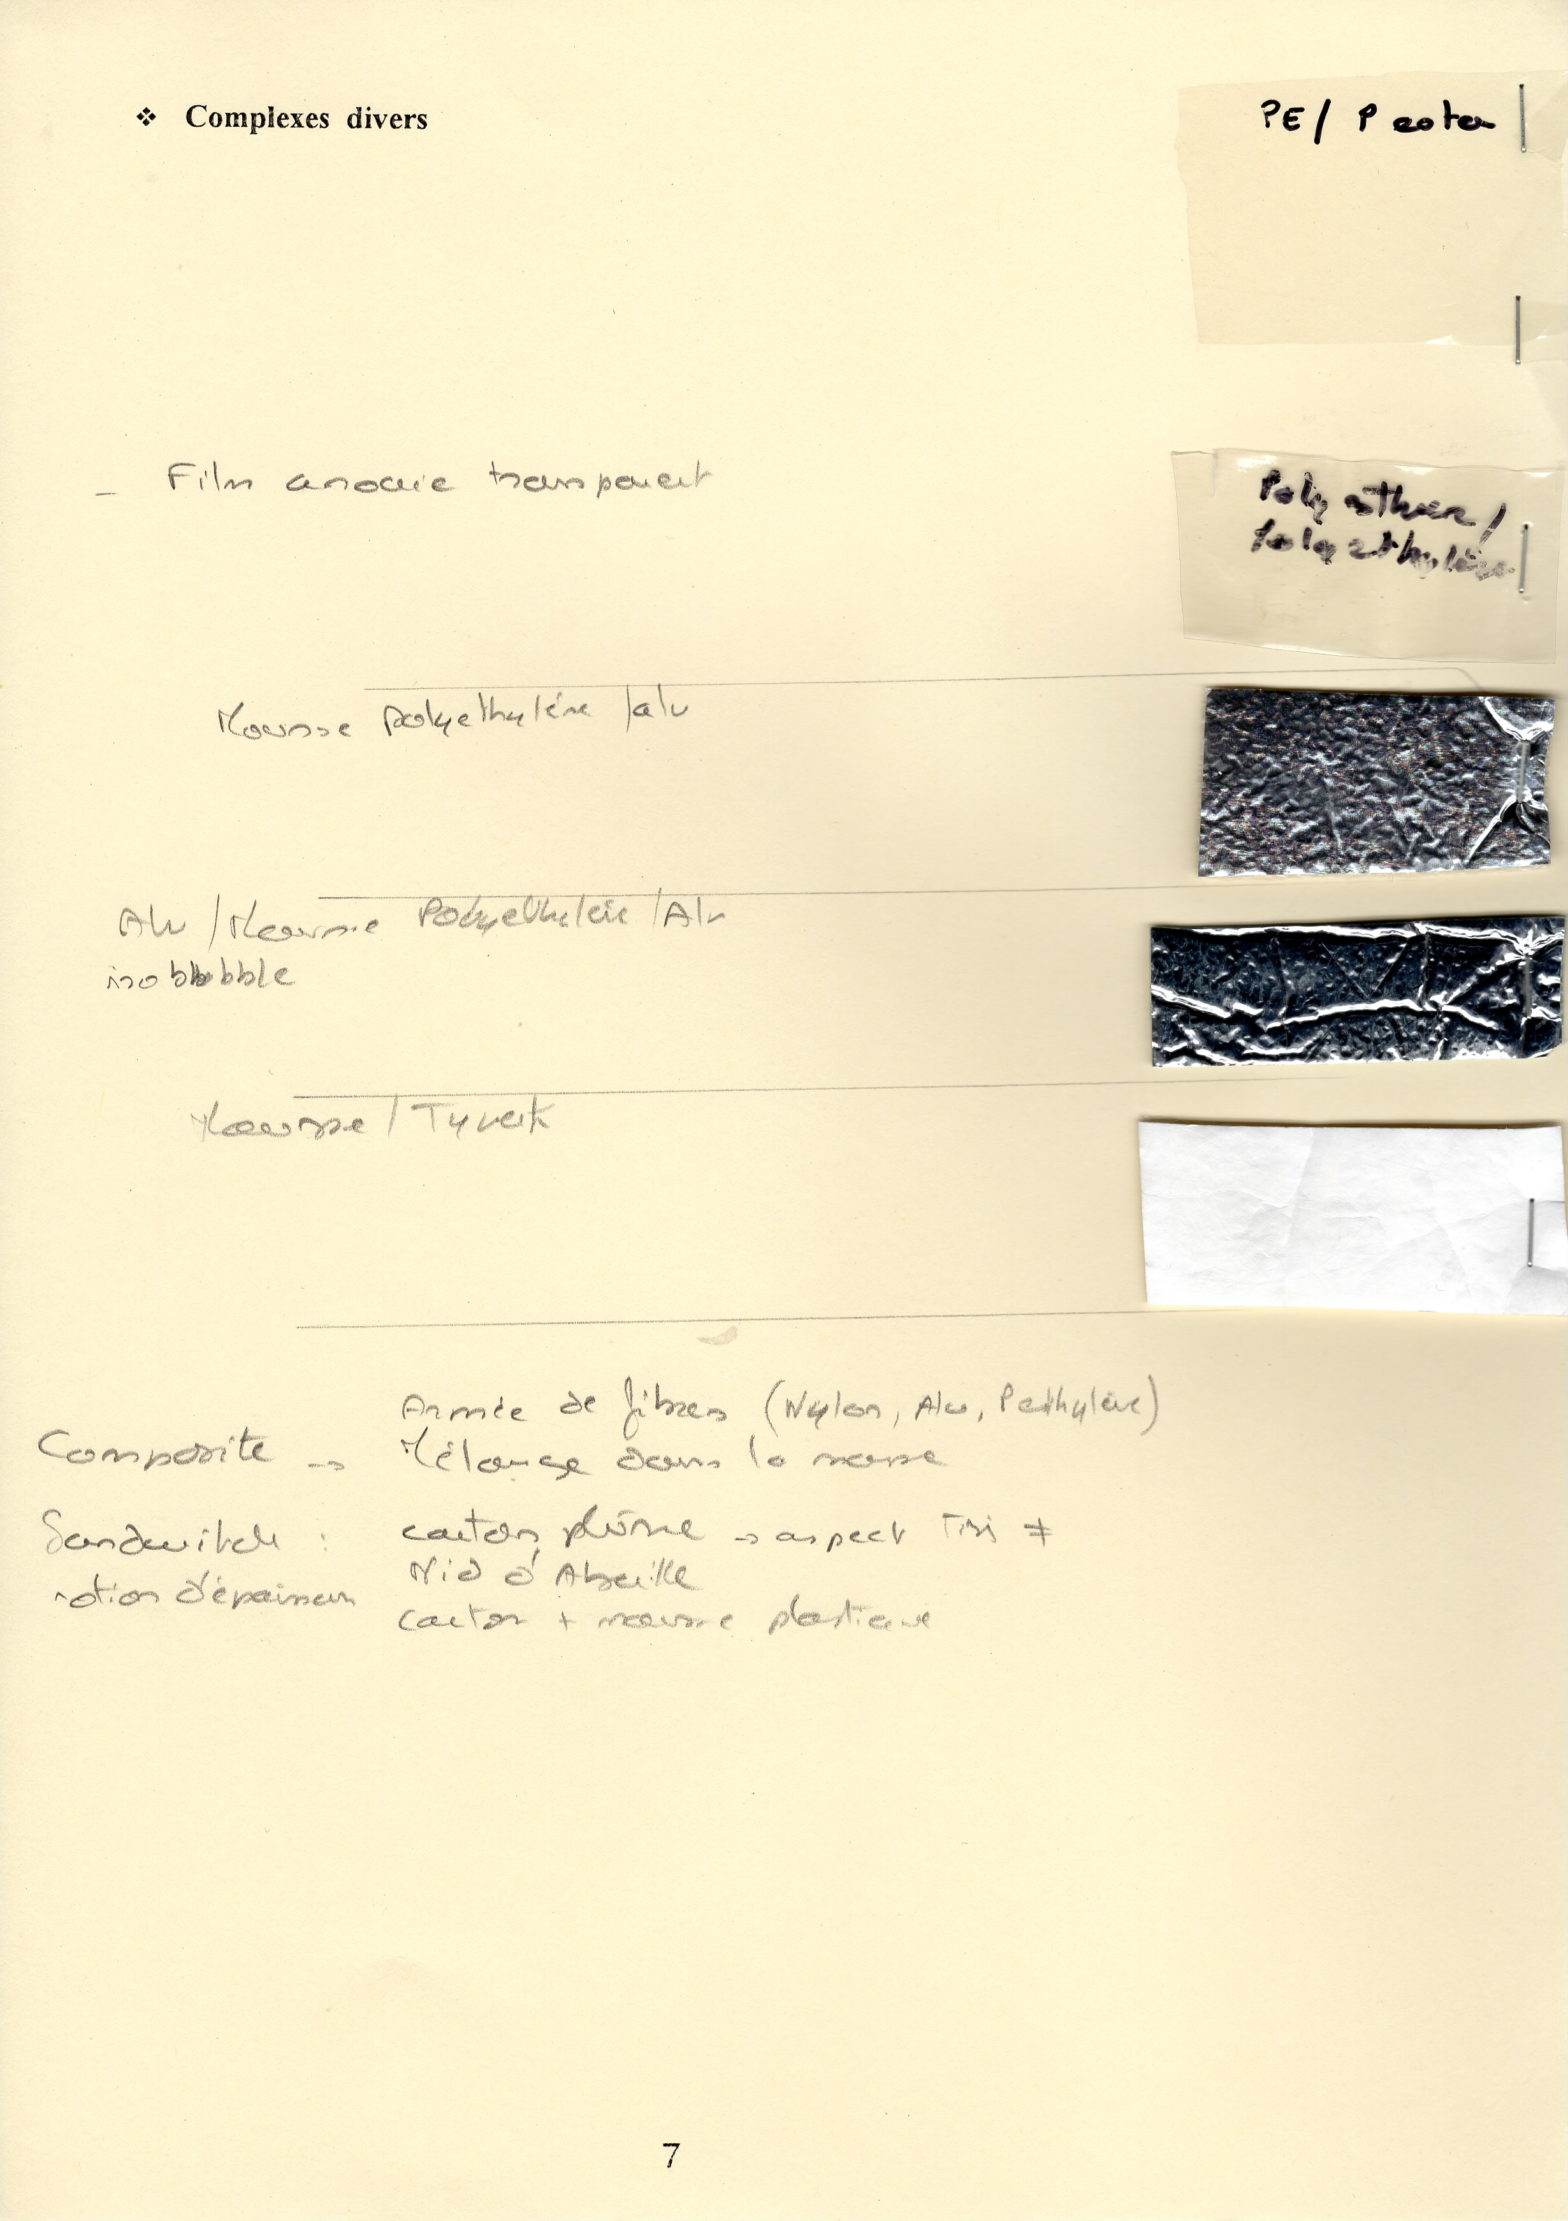 ❖ Complexes divers
PE / P ester
- Film anoxie transparent
Polyesther /
Polyethylène
Mousse polyethylène / alu
Alu / Mousse Polyethyleie / Alu
isobbubbble
Mousse / Tyvek
Armée de fibres (Nylon, Alu, Pethylène)
Composite → Mélange dans la masse
Sandwitch : carton plûme → aspect ≠
Nid d'Abeille
notion d'épaisseur
carton + mousse plastique
7